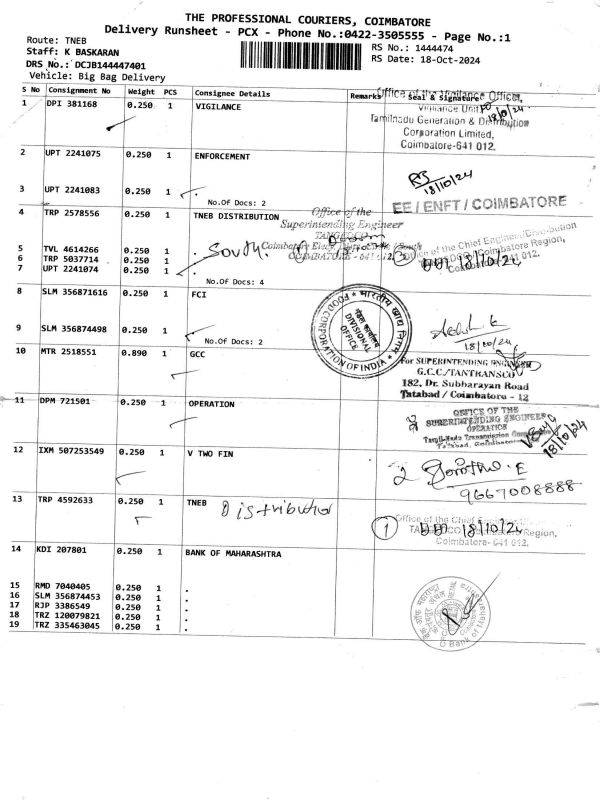 THE PROFESSIONAL COURIERS, COIMBATORE
Delivery Runsheet - PCX - Phone No.:0422-3505555 - Page No.:1
Route: TNEB
RS No.: 1444474
Staff: K BASKARAN
RS Date: 18-Oct-2024
DRS No.: DCJB144447401
Vehicle: Big Bag Delivery
S No Consignment No Weight PCS Consignee Details Remarks Seal & Signature
Office of the Vigilance Officer,
1 DPI 381168 0.250 1 VIGILANCE
Vigilance Unit
18/10/24
Tamilnadu Generation & Distribution
Corporation Limited,
Coimbatore-641 012.
2 UPT 2241075 0.250 1 ENFORCEMENT
18/10/24
3 UPT 2241083 0.250 1 .
No.Of Docs: 2
EE / ENFT / COIMBATORE
4 TRP 2578556 0.250 1 TNEB DISTRIBUTION
Office of the
Superintending Engineer
TANGEDCO
South.
Office of the Chief Engineer/Distribution
Coimbatore Region,
Coimbatore 641 012.
5 TVL 4614266 0.250 1 .
6 TRP 5037714 0.250 1 .
7 UPT 2241074 0.250 1 .
18/10/24
No.Of Docs: 4
8 SLM 356871616 0.250 1 FCI
FOOD CORPORATION OF INDIA
भारतीय खाद्य निगम
DIVISIONAL OFFICE
9 SLM 356874498 0.250 1 .
No.Of Docs: 2
18/10/24
10 MTR 2518551 0.890 1 GCC
For SUPERINTENDING ENGINEER
G.C.C/TANTRANSCO
182, Dr. Subbarayan Road
Tatabad / Coimbatore - 12
11 DPM 721501 0.250 1 OPERATION
OFFICE OF THE
SUPERINTENDING ENGINEER
OPERATION
18/10/24
12 IXM 507253549 0.250 1 V TWO FIN
9667008888
13 TRP 4592633 0.250 1 TNEB
Distribution
Office of the Chief
1
18/10/24
Region,
Coimbatore- 641 012.
14 KDI 207801 0.250 1 BANK OF MAHARASHTRA
15 RMD 7040405 0.250 1 .
16 SLM 356874453 0.250 1 .
17 RJP 3386549 0.250 1 .
18 TRZ 120079821 0.250 1 .
19 TRZ 335463045 0.250 1 .